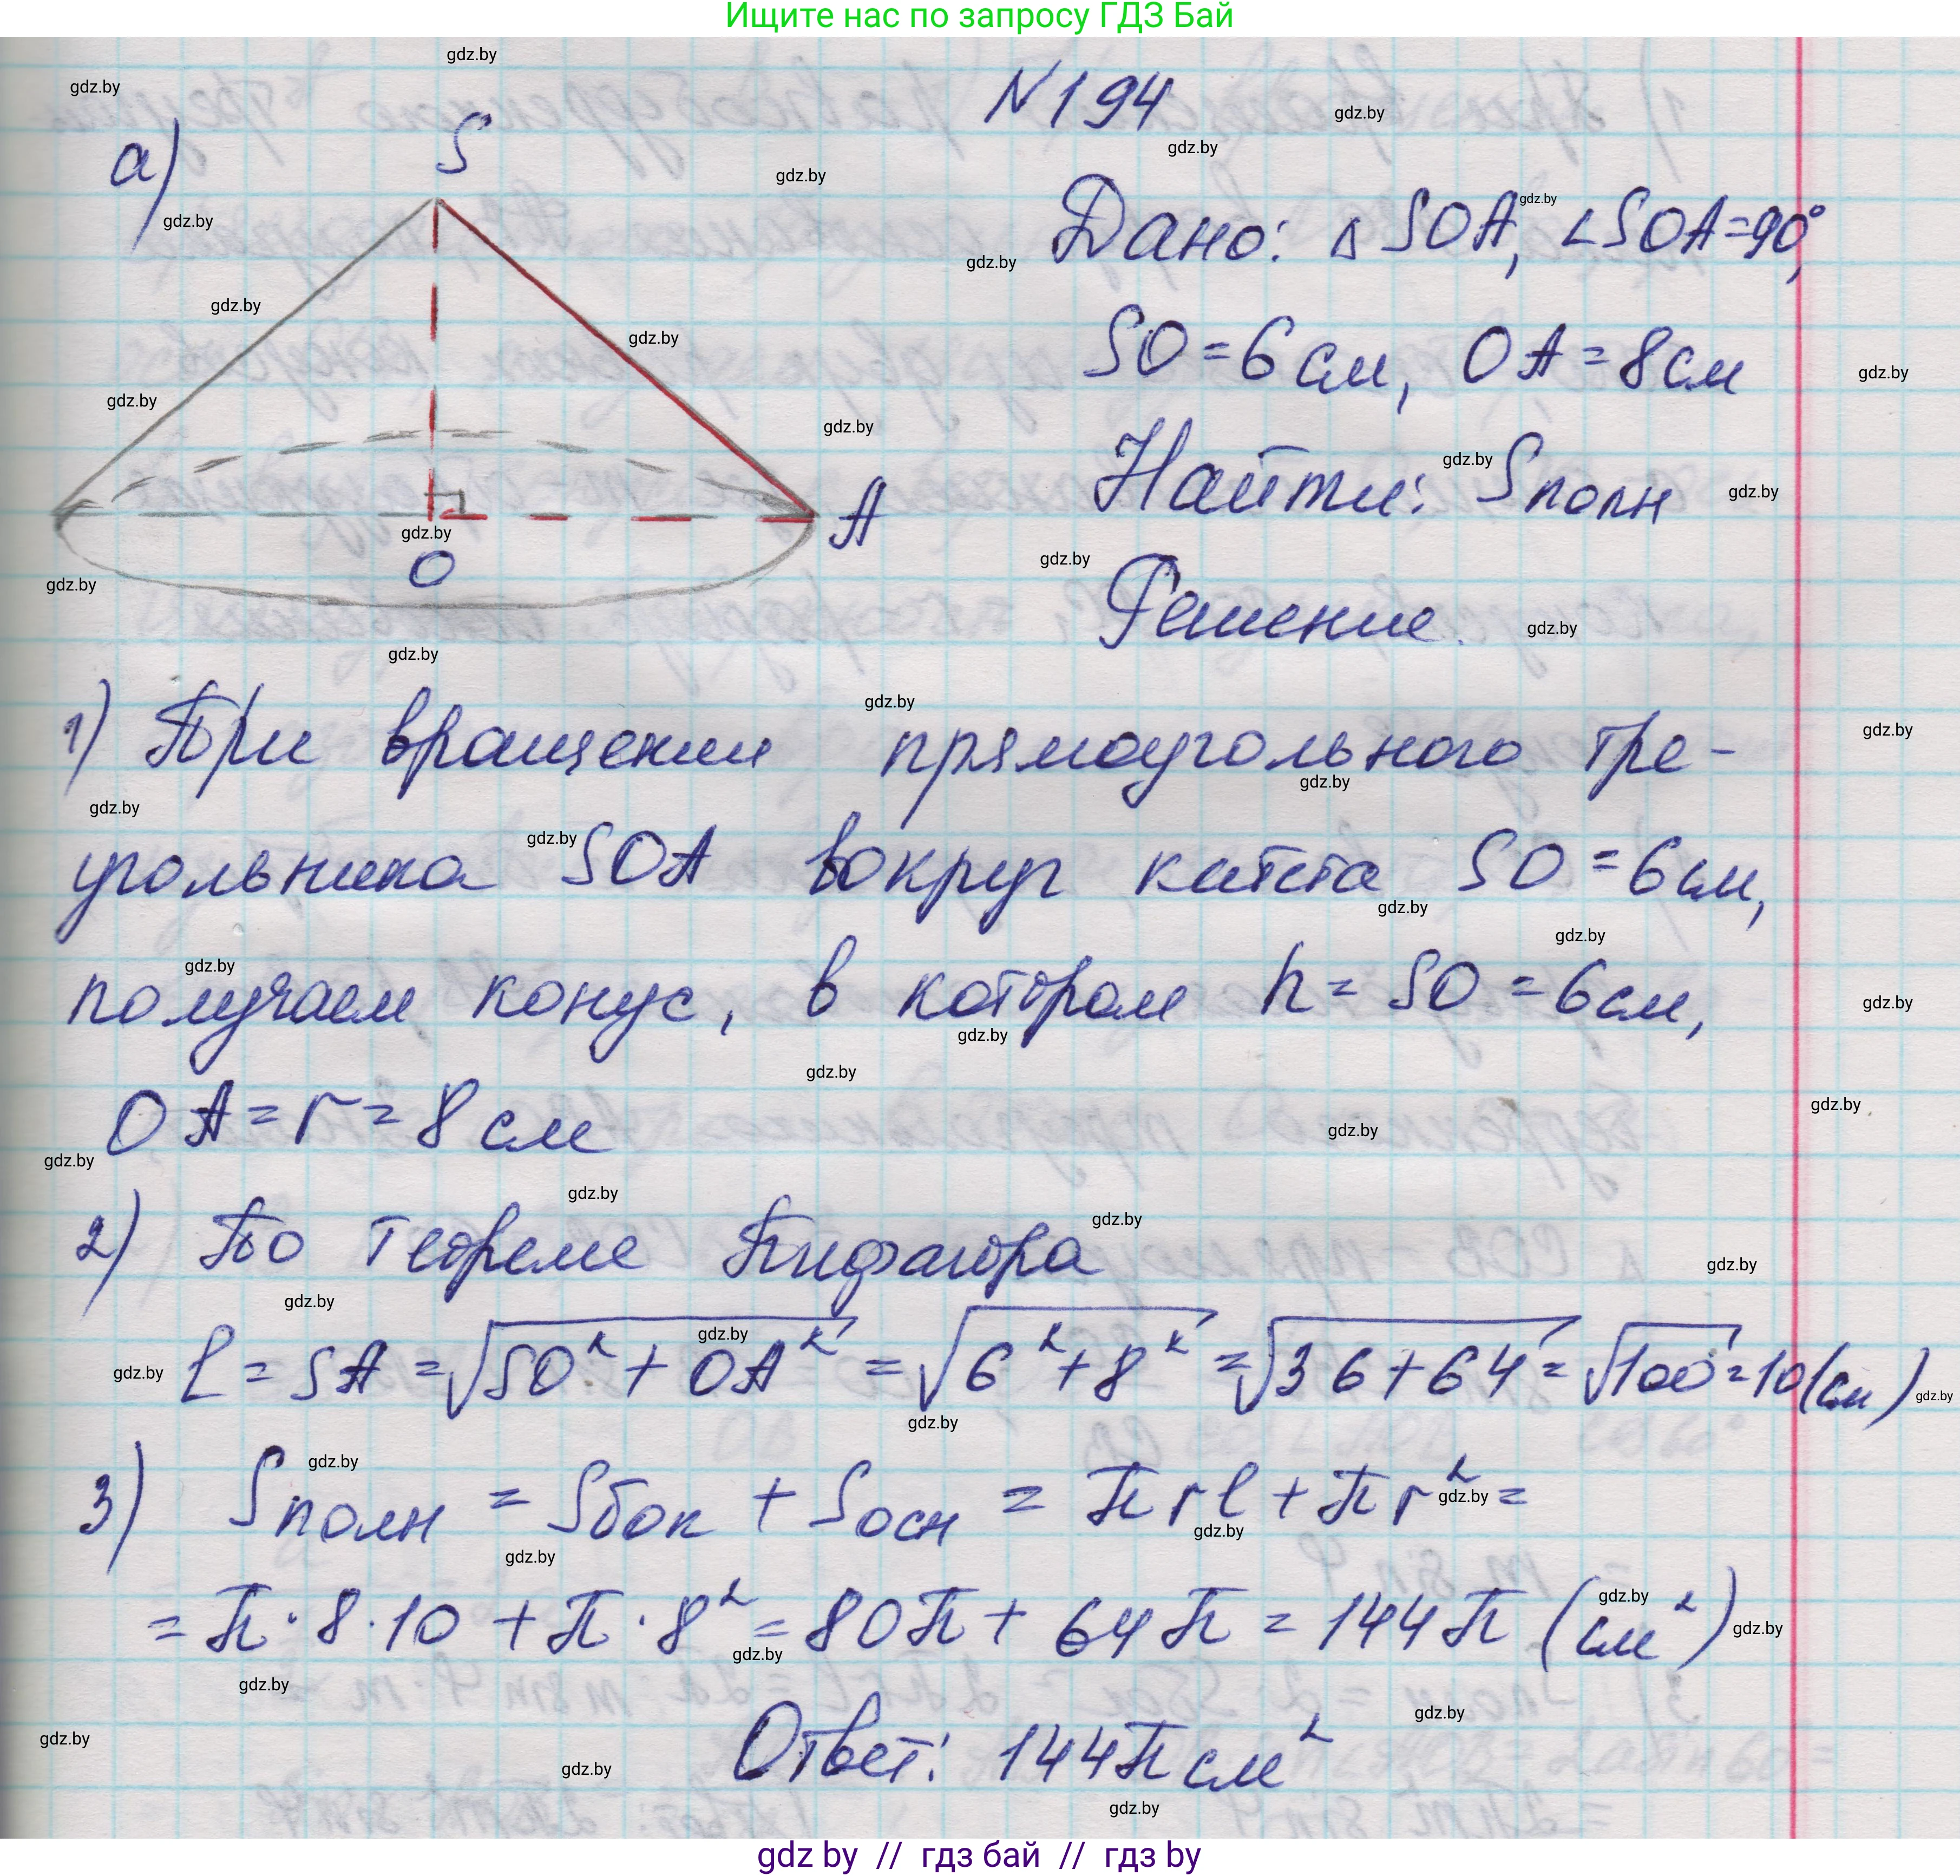 Ищите нас по запросу ГДЗ Бай
N 194
а)
S
A
O
Дано: Δ SOA, ∠SOA=90°,
SO = 6 см, OA = 8 см
Найти: Sполн
Решение.
1) При вращении прямоугольного тре-
угольника SOA вокруг катета SO = 6 см,
получаем конус, в котором h = SO = 6 см,
OA = r = 8 см
2) По теореме Пифагора
l = SA = √SO² + OA² = √6² + 8² = √36 + 64 = √100 = 10 (см)
3) Sполн = Sбок + Sосн = π r l + π r² =
= π · 8 · 10 + π · 8² = 80π + 64π = 144π (см²)
Ответ: 144π см²
gdz by // гдз бай // гдз by